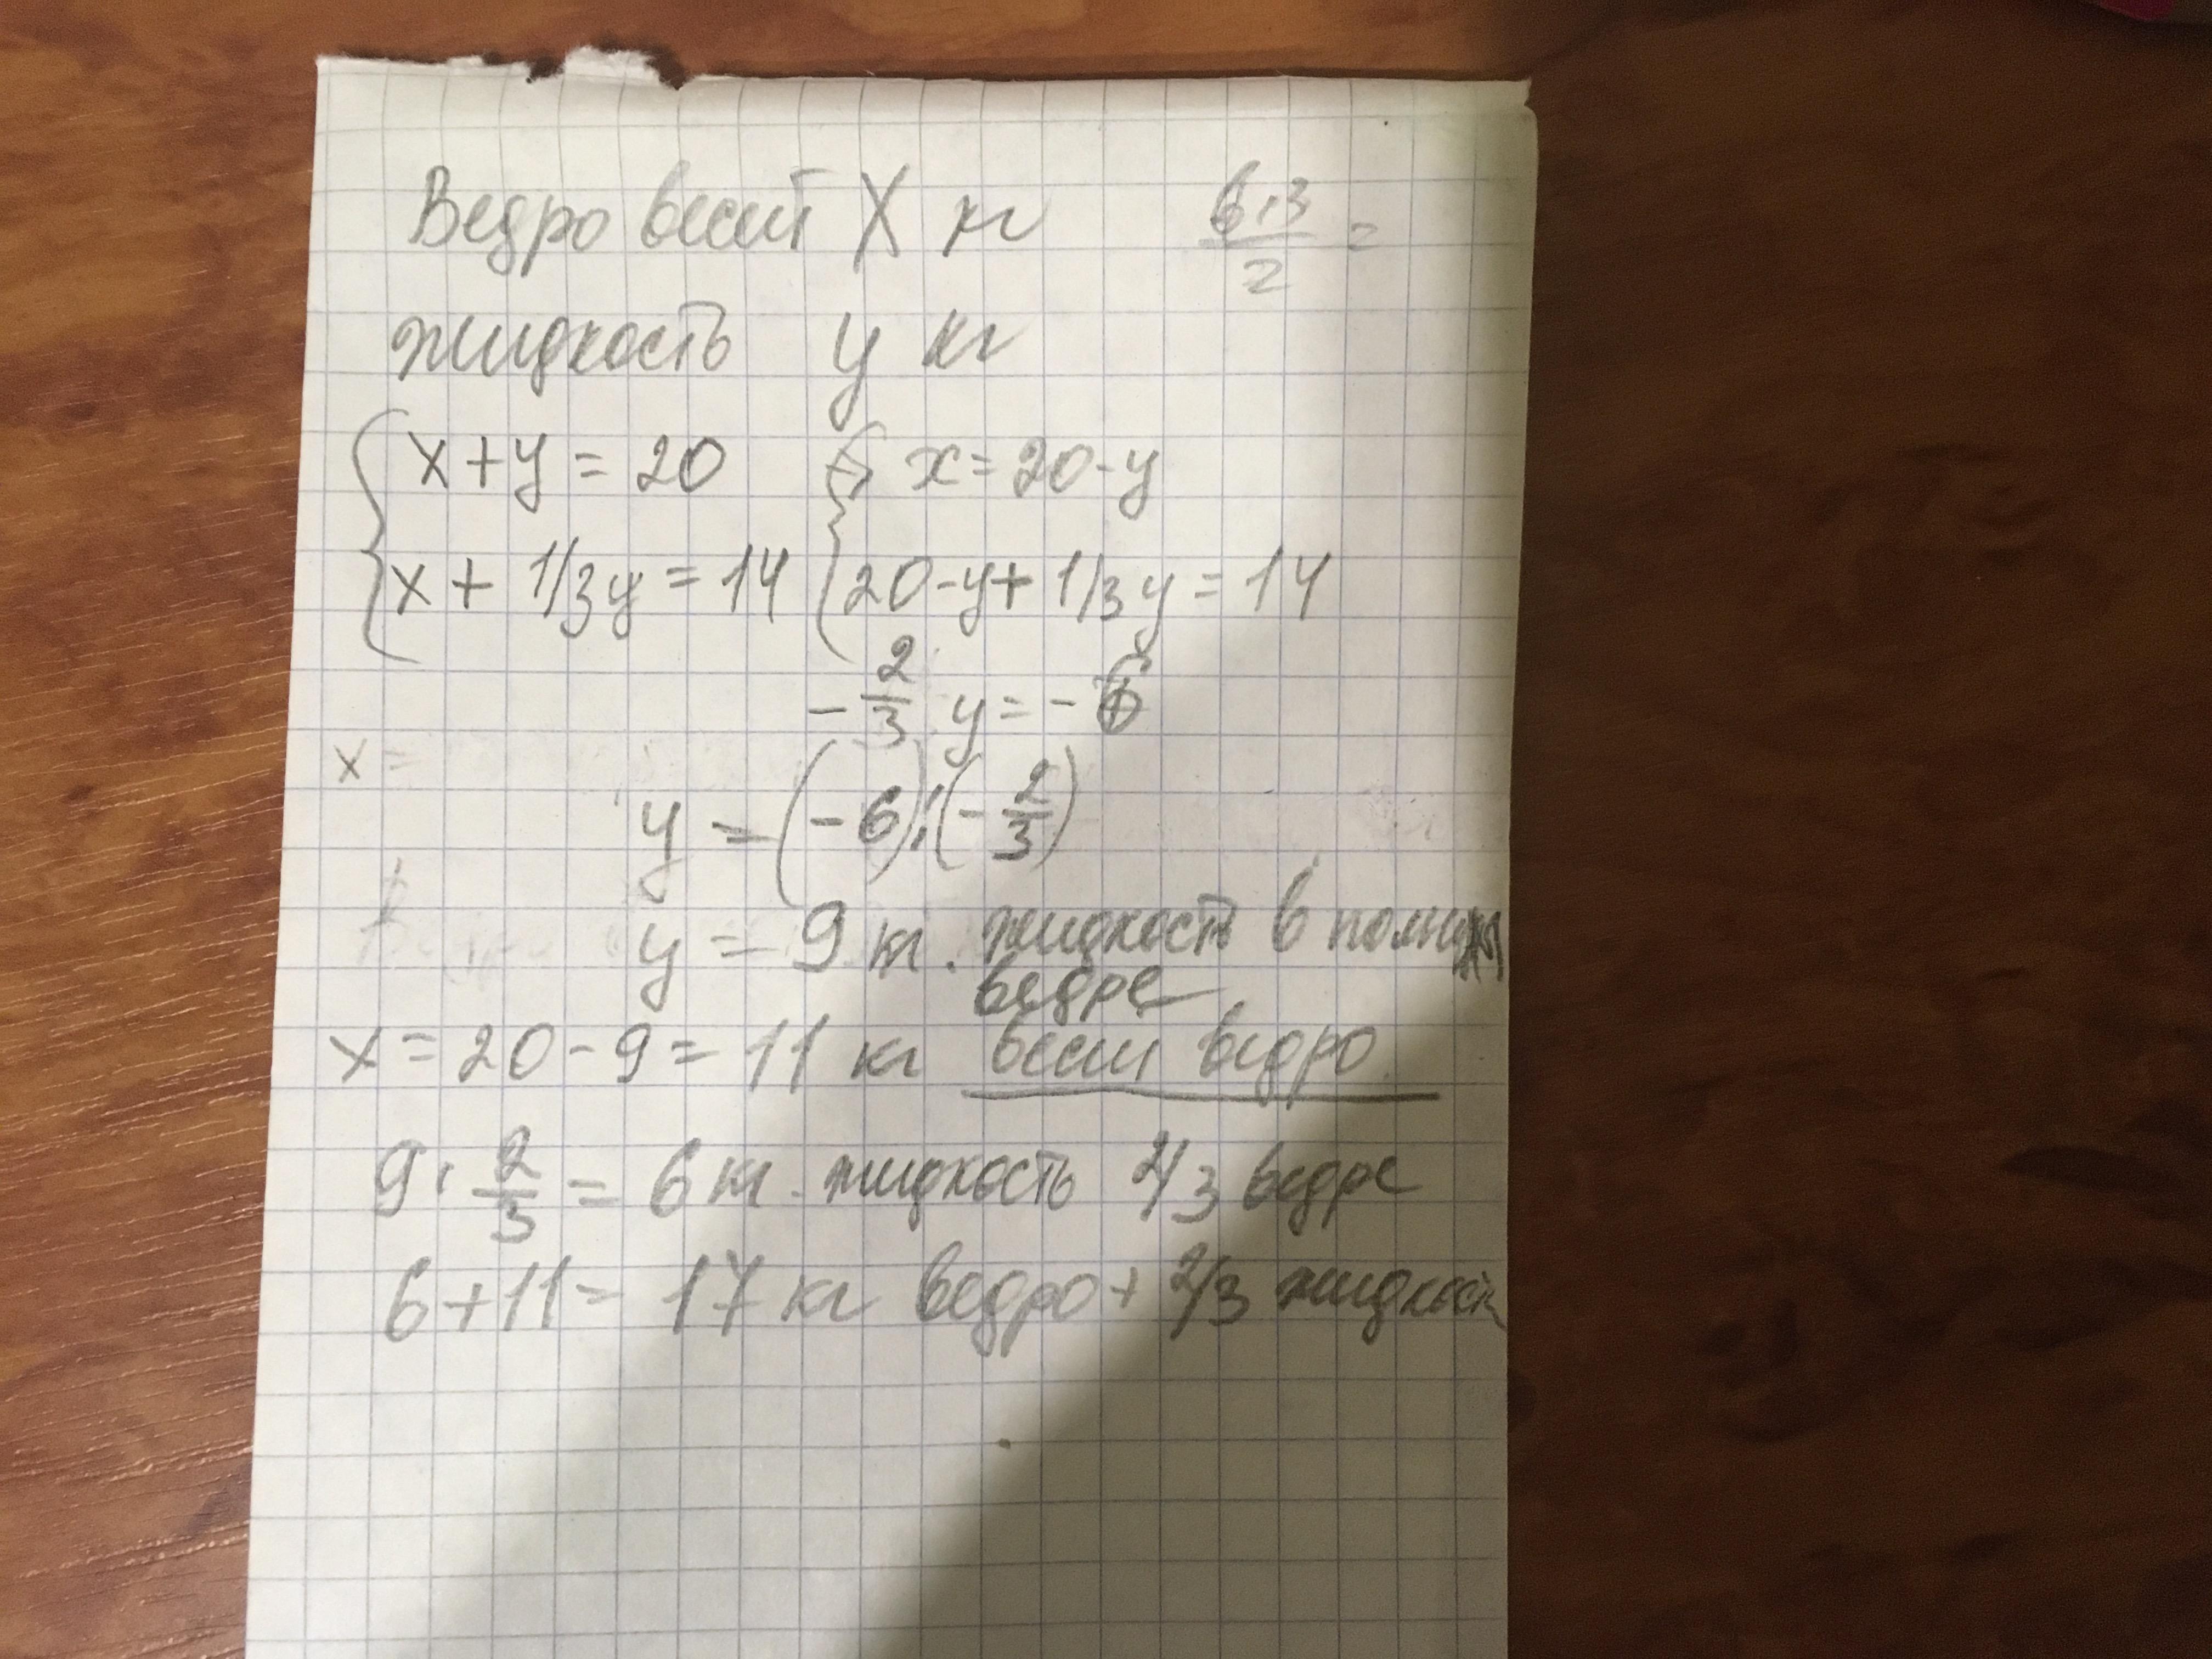 Ведро весит X кг
6·3/2 =
жидкость y кг
x+y=20
x=20-y
x + 1/3y = 14
20-y+ 1/3y = 14
-2/3 y = -6
x=
y = (-6):(-2/3)
y = 9 кг. жидкость в полном
ведре
x = 20-9 = 11 кг весит ведро.
9·2/3 = 6 кг. жидкость 2/3 ведре
6+11= 17 кг ведро + 2/3 жидкости